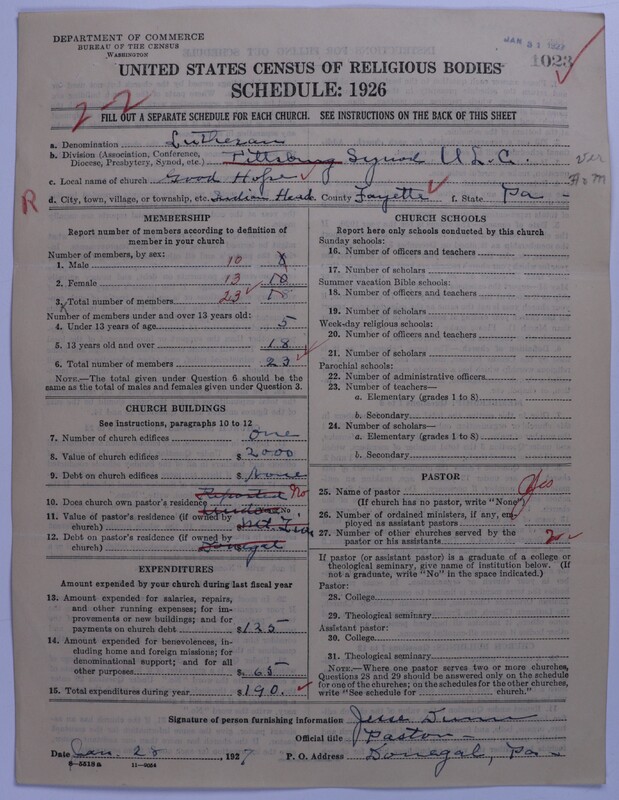 DEPARTMENT OF COMMERCE
BUREAU OF THE CENSUS
WASHINGTON
JAN 31 1927
1023
UNITED STATES CENSUS OF RELIGIOUS BODIES
SCHEDULE: 1926
2-2
FILL OUT A SEPARATE SCHEDULE FOR EACH CHURCH. SEE INSTRUCTIONS ON THE BACK OF THIS SHEET
a. Denomination Lutheran
b. Division (Association, Conference, Diocese, Presbytery, Synod, etc.) Pittsburg Synod U.L.C.
c. Local name of church Good Hope
d. City, town, village, or township, etc. Indian Head County Fayette f. State Pa
R
MEMBERSHIP
Report number of members according to definition of
member in your church
Number of members, by sex:
1. Male 10 8
2. Female 13 10
3. Total number of members 23 18
Number of members under and over 13 years old:
4. Under 13 years of age 5
5. 13 years old and over 18
6. Total number of members 23
NOTE.—The total given under Question 6 should be the
same as the total of males and females given under Question 3.
CHURCH BUILDINGS
See instructions, paragraphs 10 to 12
7. Number of church edifices one
8. Value of church edifices $ 2000
9. Debt on church edifices $ None
10. Does church own pastor's residence Reported No
11. Value of pastor's residence (if owned by
church) Mt. Zion
12. Debt on pastor's residence (if owned by
church) Donegal
EXPENDITURES
Amount expended by your church during last fiscal year
13. Amount expended for salaries, repairs,
and other running expenses; for im-
provements or new buildings; and for
payments on church debt $125
14. Amount expended for benevolences, in-
cluding home and foreign missions; for
denominational support; and for all
other purposes $ 65
15. Total expenditures during year $190.
CHURCH SCHOOLS
Report here only schools conducted by this church
Sunday schools:
16. Number of officers and teachers
17. Number of scholars
Summer vacation Bible schools:
18. Number of officers and teachers
19. Number of scholars
Week-day religious schools:
20. Number of officers and teachers
21. Number of scholars
Parochial schools:
22. Number of administrative officers
23. Number of teachers—
a. Elementary (grades 1 to 8)
b. Secondary
24. Number of scholars—
a. Elementary (grades 1 to 8)
b. Secondary
PASTOR
25. Name of pastor Yes
(If church has no pastor, write "None")
26. Number of ordained ministers, if any, em-
ployed as assistant pastors
27. Number of other churches served by the
pastor or his assistants 2
If pastor (or assistant pastor) is a graduate of a college or
theological seminary, give name of institution below. (If
not a graduate, write "No" in the space indicated.)
Pastor:
28. College
29. Theological seminary
Assistant pastor:
30. College
31. Theological seminary
NOTE.—Where one pastor serves two or more churches,
Questions 28 and 29 should be answered only on the schedule
for one of the churches; on the schedules for the other churches,
write "See schedule for church."
Signature of person furnishing information Jesse Dunn
Official title Pastor
Date Jan. 28, 1927 P. O. Address Donegal, Pa
8-5519a 11-9054